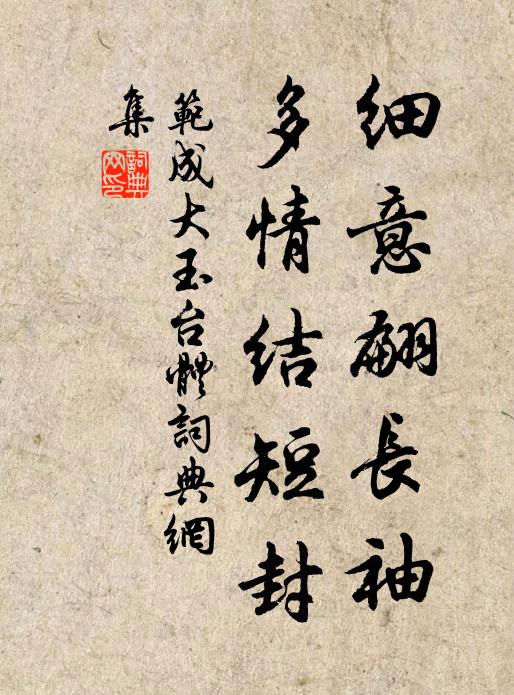 細意翩長袖
多情結短封
範成大玉台體詞典網
集
詞典
网印